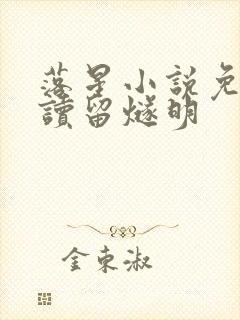 落星小說免
讀留燧明
金東淑